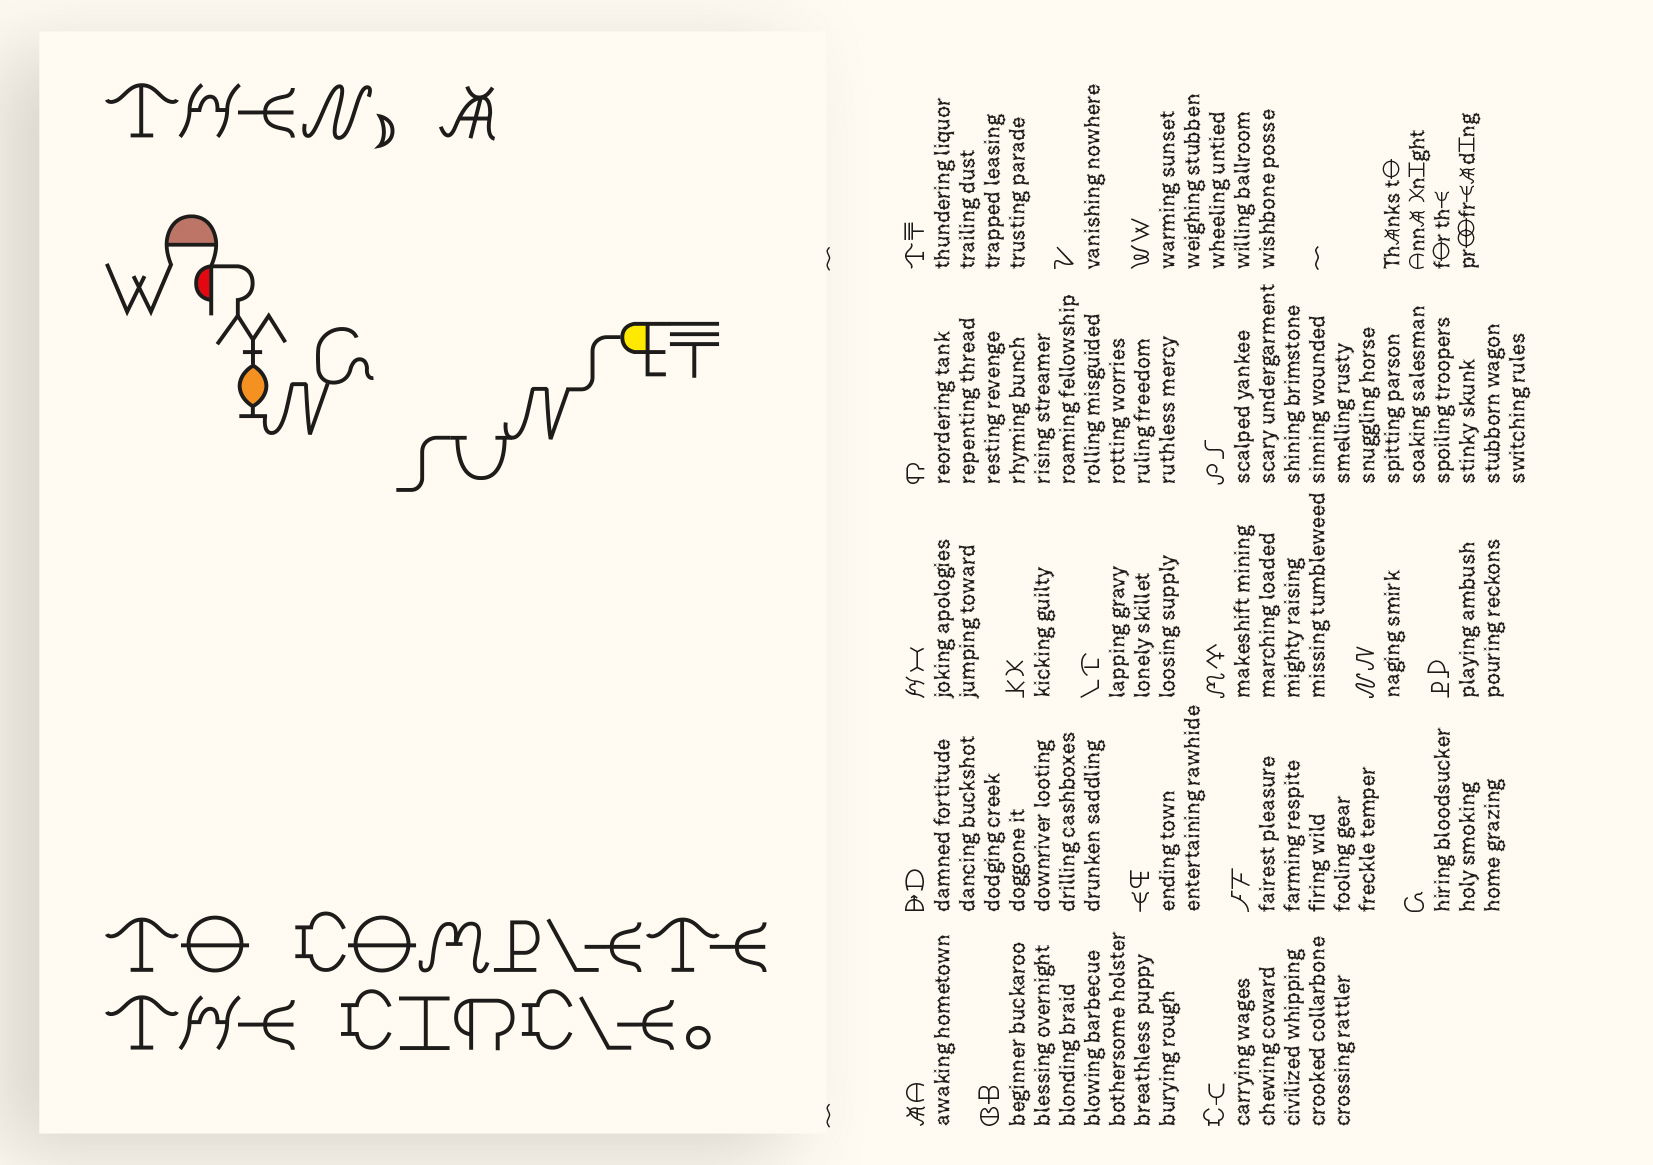 THEN, A
WARMING
SUNSET
TO COMPLETE
THE CIRCLE.
AA
awaking hometown
BB
beginner buckaroo
blessing overnight
blonding braid
blowing barbecue
bothersome holster
breathless puppy
burying rough
CC
carrying wages
chewing coward
civilized whipping
crooked collarbone
crossing rattler
DD
damned fortitude
dancing buckshot
dodging creek
doggone it
downriver looting
drilling cashboxes
drunken saddling
EE
ending town
entertaining rawhide
FF
fairest pleasure
farming respite
firing wild
fooling gear
freckle temper
G
hiring bloodsucker
holy smoking
home grazing
HH
joking apologies
jumping toward
KK
kicking guilty
LL
lapping gravy
lonely skillet
loosing supply
MM
makeshift mining
marching loaded
mighty raising
missing tumbleweed
NN
naging smirk
PP
playing ambush
pouring reckons
R
reordering tank
repenting thread
resting revenge
rhyming bunch
rising streamer
roaming fellowship
rolling misguided
rotting worries
ruling freedom
ruthless mercy
SS
scalped yankee
scary undergarment
shining brimstone
sinning wounded
smelling rusty
snuggling horse
spitting parson
soaking salesman
spoiling troopers
stinky skunk
stubborn wagon
switching rules
TT
thundering liquor
trailing dust
trapped leasing
trusting parade
V
vanishing nowhere
WW
warming sunset
weighing stubben
wheeling untied
willing ballroom
wishbone posse
~
ThAnks tO
AnnA KnIght
fOr thE
prOOfrEAdIng